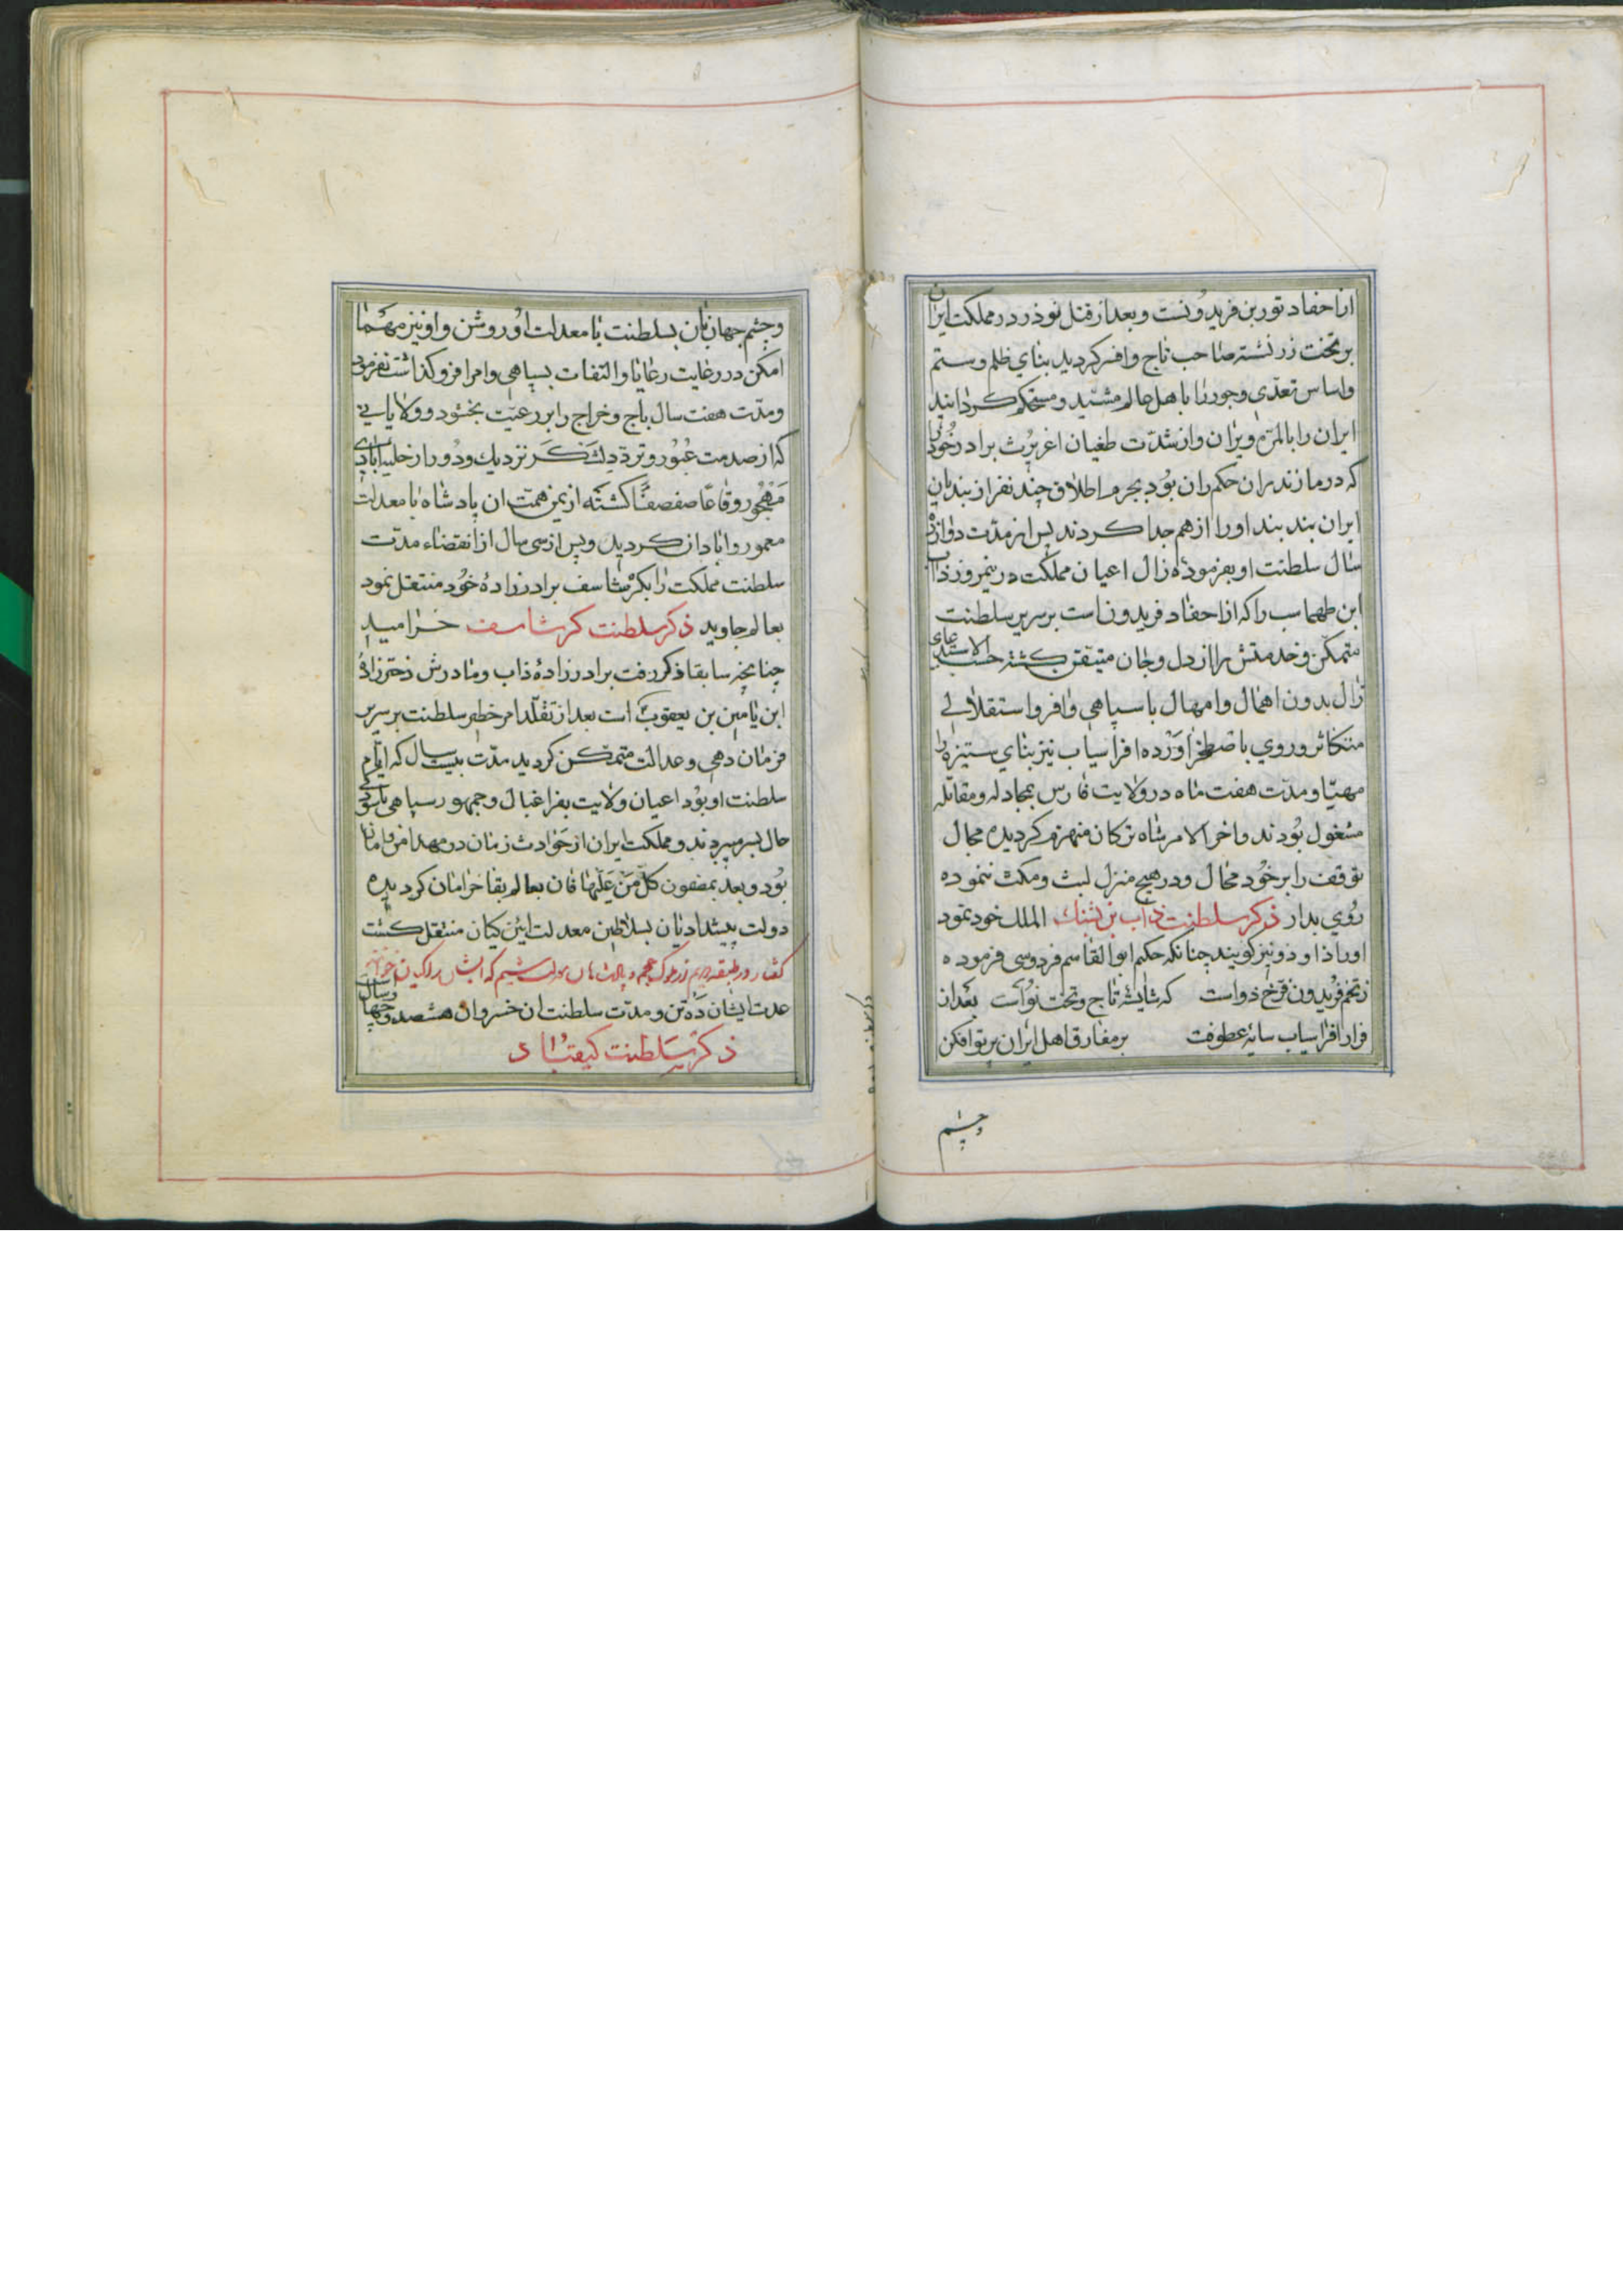 از احفاد تور بن فریدونست و بعد از قتل نوذر در مملکت ایران
بر تخت زر نشسته صاحب تاج و افسر کردید بنای ظلم و ستم
و اساس تعدی و جور را با هل عالم مشید و مستحکم کردانید
ایران را بالمره ویران و از شدت طغیان اغریرث برادر خود را
که در مازندران حکمران بود بجرم اطلاق چند نفر از بندیان
ایران بند بند او را از هم جدا کردند پس از مدت دوازده
سال سلطنت او بفرموده زال اعیان مملکت در نیمروز ذاب
ابن طهماسب را که از احفاد فریدونست بر سریر سلطنت
متمکن و خدمتش را از دل و جان متیقن کشته حسب الاستدعای
زال بدون اهمال و امهال با سپاهی وافر و استقلالی
متکاثر و روی باصطخر اورده افراسیاب نیز بنای ستیزه را
مهیا و مدت هفت ماه در ولایت فارس بمجادله و مقاتله
مشغول بودند و اخر الامر شاه ترکان منهزم کردیده مجال
توقف را بر خود محال و در هیچ منزل لبث و مکث ننموده
روی بدار ذکر سلطنت ذاب بن الملک خود نمود
او را ذا و دو نیز کویند چنانکه حکیم ابو القاسم فردوسی فرموده
ز تخم فریدون فرخ ذواست که شایسته تاج و تخت نواست بعد از
فرار افراسیاب سایه عطوفت بر مفارق اهل ایران پرتو افکن
و چشم
و چشم جهانیان بسلطنت با معدلت او روشن و او نیز مهما
امکن در رعایت رعایا و التفات بسپاهی و امرا فرو کذاشت نفرمود
و مدت هفت سال باج و خراج را بر رعیت بخشود و ولایاتی
که از صدمت عبور و تردد لشکر نزدیک و دور از حلیه ابادی
مهجور و قاعا صفصفا کشته از یمن همت ان پادشاه با معدلت
معمور و ابادان کردید و پس از سی سال از انقضاء مدت
سلطنت مملکت را بکرشاسف برادرزاده خود منتقل نمود
بعالم جاوید ذکر سلطنت کرشاسف خرامید
چنانچه سابقا ذکر رفت برادرزاده ذاب و مادرش دختر زاده
ابن یامین بن یعقوب است بعد از تقلد امر خطیر سلطنت بر سریر
فرمان دهی و عدالت متمکن کردید مدت بیست سال که ایام
سلطنت او بود اعیان ولایت بفراغبال و جمهور سپاهی باسودکی
حال بسر میبردند و مملکت ایران از حوادث زمان در مهد امن و امان
بود و بعد بمضمون کل من علیها فان بعالم بقا خرامان کردیده
دولت پیشدادیان بسلاطین معدلت ایین کیان منتقل کشت
کفتار در طبقه دویم از ملوک عجم و
عدت ایشان ده تن و مدت سلطنت ان خسروان هشتصد و چهار سال
ذکر سلطنت کیقباد